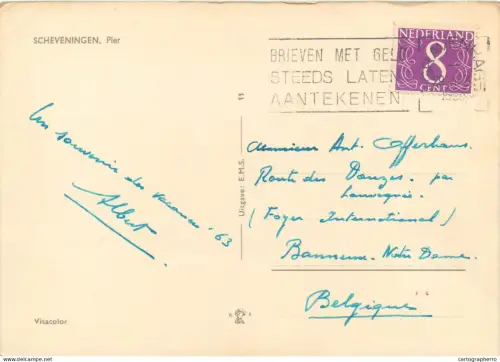 SCHEVENINGEN, Pier
NEDERLAND
8
CENT
BRIEVEN MET GEL
STEEDS LATEN
AANTEKENEN
Un souvenir des vacances '63
Albert
Uitgave: E.M.S. 11
Monsieur Ant. Offerhaus.
Route des Donzes. par
Louveigné.
( Foyer International )
Banneux. Notre Dame.
Belgique
Visacolor
https://www.delcampe.net
cartographerro